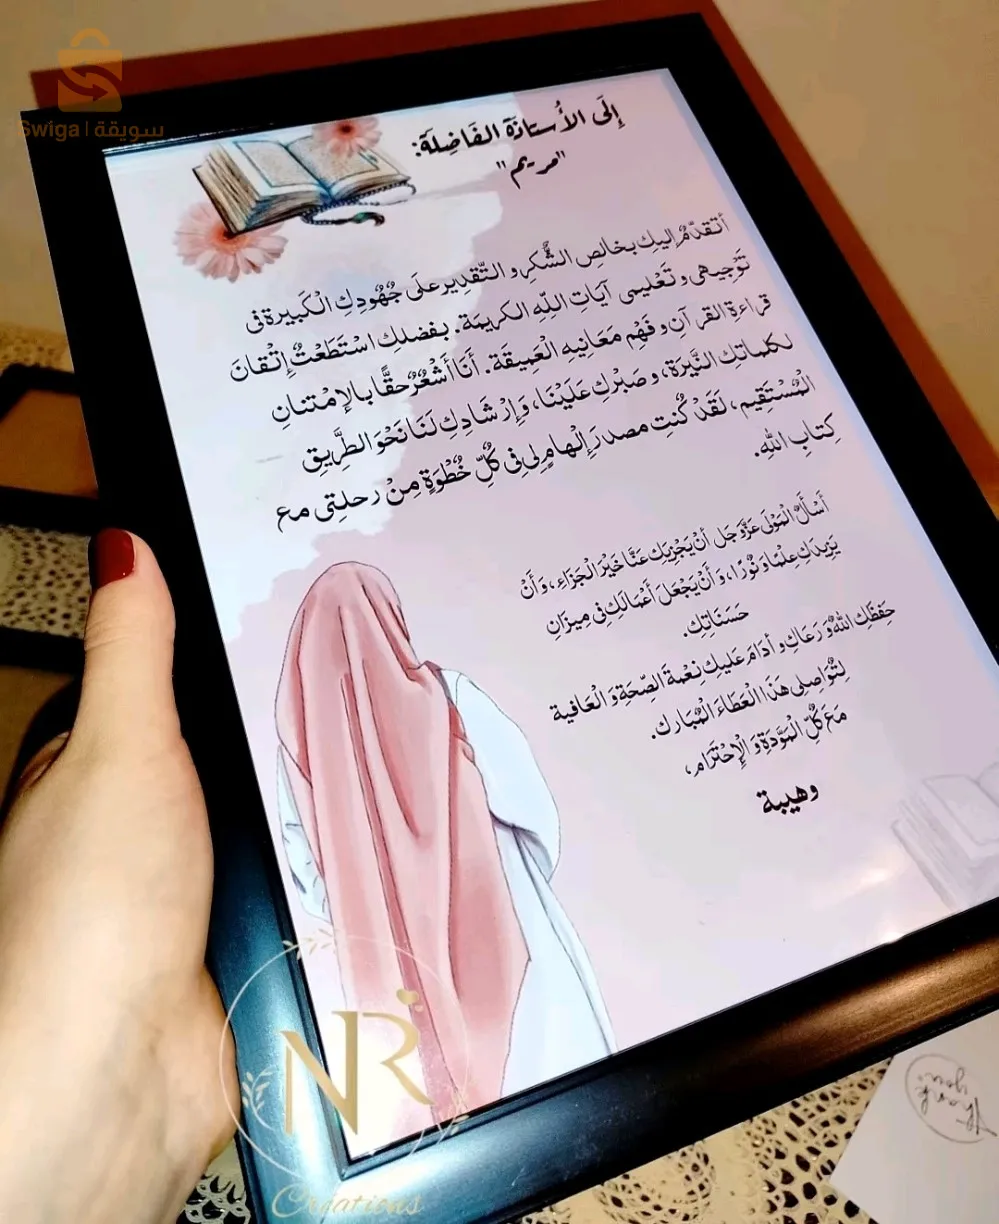 Swiga | سويقة
إلَى الأُستاذة الفَاضِلة:
"مريم"
أتقدّمُ إليكِ بخالصِ الشُّكرِ و التّقديرِ علَى جُهُودِكِ الْكَبيرة فى
تَوجيهى و تَعْليمى آيَاتِ اللّهِ الكريمَة. بفضلكِ اسْتَطَعْتُ إتْقانَ
قراءةِ القرآن و فَهْمِ مَعَانِيهِ الْعَمِيقَة. أَنَا أَشْعُرُ حقًّا بالإمْتنانِ
لكلماتِكِ النَّيِّرَة، و صَبْرِكِ عَلَيْنَا، وَإِرْشَادِكِ لَنَا نَحْوَ الطَّرِيقِ
الْمُسْتَقِيم، لَقَدْ كُنتِ مصدرَ إلْهامٍ لى فى كُلِّ خُطْوَةٍ مِنْ رحلتِى مع
كِتابِ اللّه.
أَسْأَلُ الْمَوْلَى عَزَّ وَجَل أَنْ يَجْزِيَكِ عَنَّا خَيْرَ الْجَزَاءِ، وَأَنْ
يَزِيدَكِ عِلْمًا وَ نُورًا، وَ أَنْ يَجْعَلَ أَعْمَالَكِ فِى مِيزَانِ
حَسَنَاتِكِ.
حَفِظَكِ اللّهُ وَ رَعَاكِ و أدَامَ عَليكِ نعْمةَ الصِّحَةِ وَ الْعَافية
لِتُوَاصِلِى هَذَا الْعَطَاءَ الْمُبَارك.
مَعَ كُلِّ الْمَوَدَةِ وَ الْإِحْتِرَام،
وهيبة
NR
Créations
Thank
you